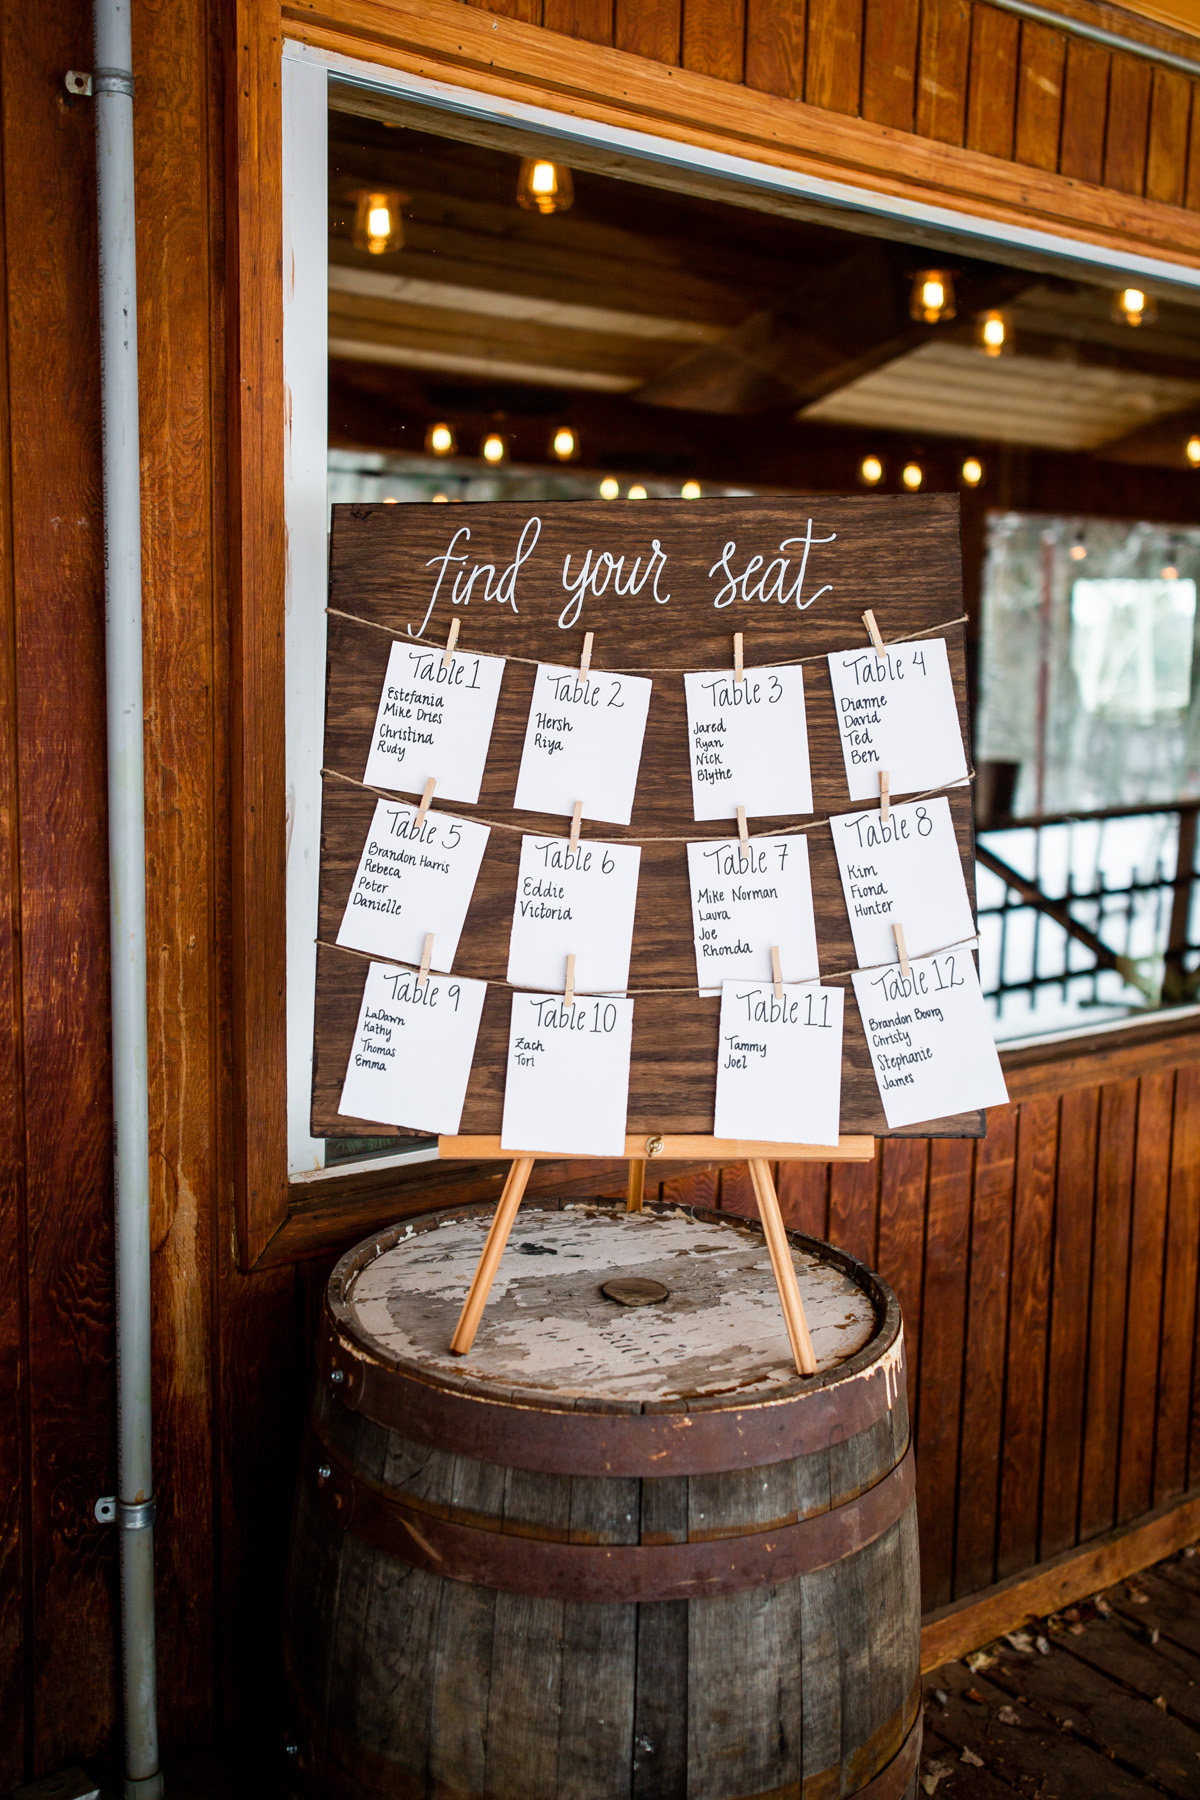 find your seat
Table 1
Estefania
Mike Dries
Christina
Rudy
Table 2
Hersh
Riya
Table 3
Jared
Ryan
Nick
Blythe
Table 4
Dianne
David
Ted
Ben
Table 5
Brandon Harris
Rebeca
Peter
Danielle
Table 6
Eddie
Victoria
Table 7
Mike Norman
Laura
Joe
Rhonda
Table 8
Kim
Fiona
Hunter
Table 9
LaDawn
Kathy
Thomas
Emma
Table 10
Zach
Tori
Table 11
Tammy
Joel
Table 12
Brandon Bourg
Christy
Stephanie
James